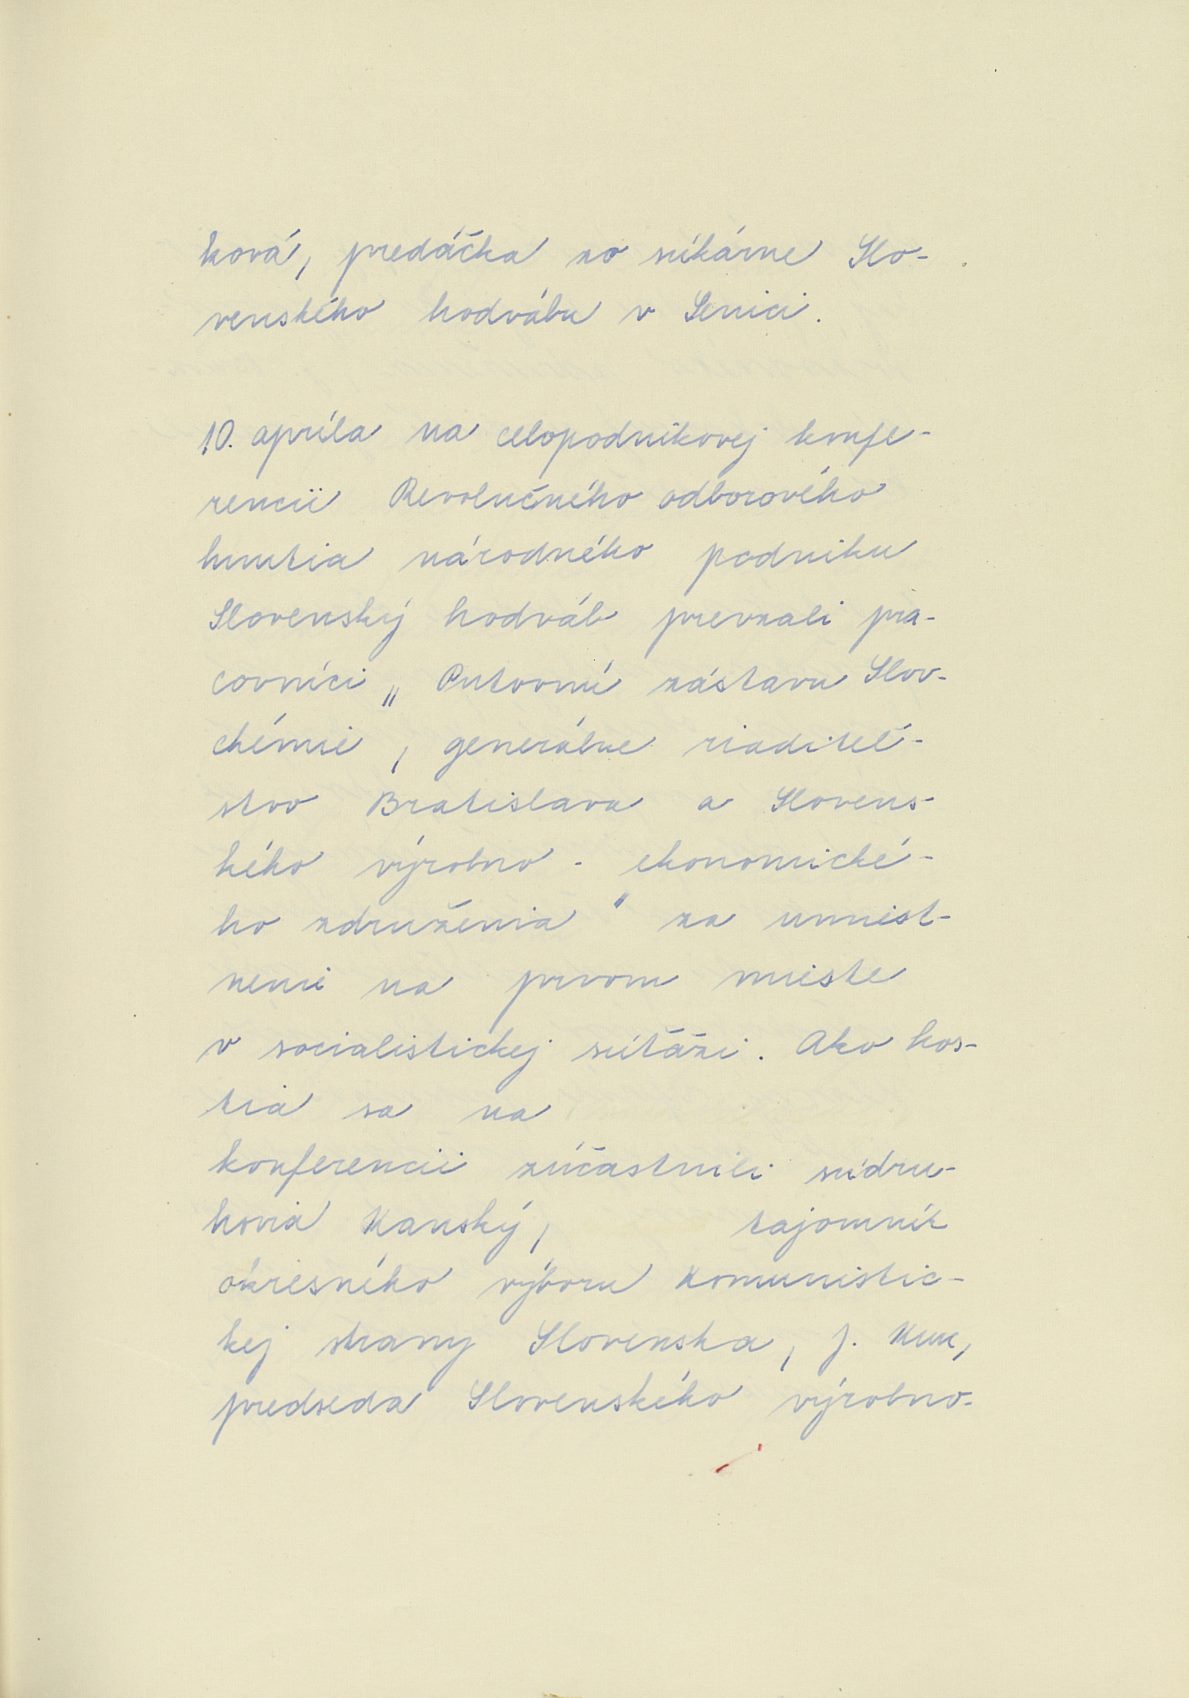 ková, predáčka zo súkárne Slo-
venského hodvábu v Senici.
10. apríla na celopodnikovej konfe-
rencii Revolučného odborového
hnutia národného podniku
Slovenský hodváb prevzali pra-
covníci „ Putovnú zástavu Slov-
chémie, generálne riaditeľ-
stvo Bratislava a Slovens-
kého výrobno - ekonomické-
ho združenia " za umiest-
nenie na prvom mieste
v socialistickej súťaži. Ako hos-
tia sa na
konferencii zúčastnili súdru-
hovia Kanský, tajomník
okresného výboru Komunistic-
kej strany Slovenska, J.
predseda Slovenského výrobno-